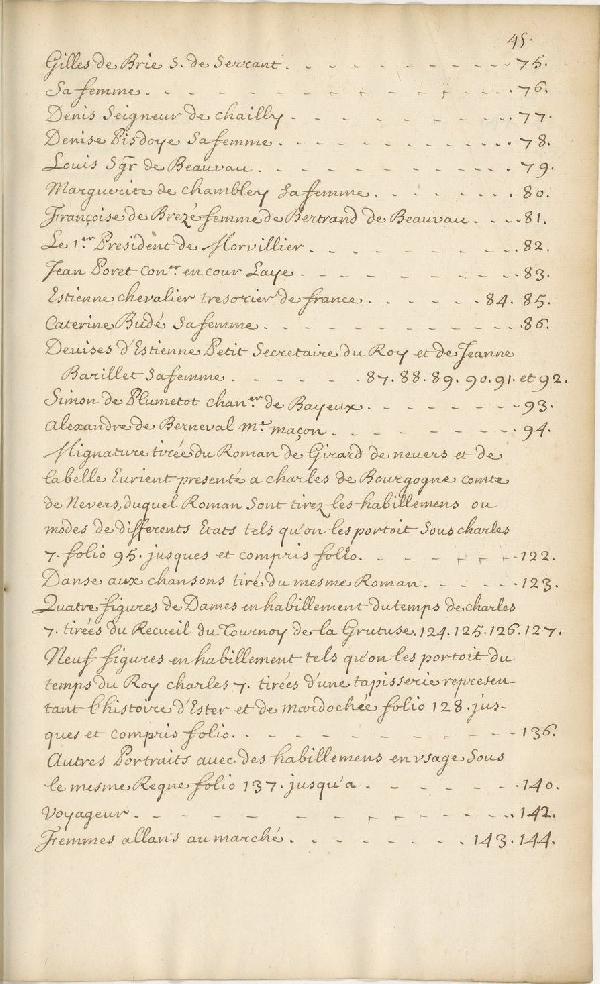 45.
Gilles de Brie S. de Serrant. - - - - - - - - 75.
Sa femme. - - - - - - - - - - - - 76.
Denis Seigneur de Chailly. - - - - - - - 77.
Denise Pisdoye Sa femme. - - - - - - - 78.
Louis Sgr de Beauvau. - - - - - - - - 79.
Marguerite de Chambley Sa femme. - - - - - 80.
Françoise de Brezé femme de Bertrand de Beauvau. - - - 81.
Le 1.er President de Morvillier. - - - - - - - 82.
Jean Poret Con.er en cour Laye. - - - - - - - 83.
Estienne chevalier tresorier de france. - - - - - 84. 85.
Caterine Budé Sa femme. - - - - - - - - 86.
Deuises d'Estienne Petit Secretaire du Roy et de Jeanne
Barillet Sa femme. - - - - 87. 88. 89. 90. 91. et 92.
Simon de Plumetot chan.er de Bayeux. - - - - - 93.
Alexandre de Berneval m.e maçon. - - - - - - 94.
Mignature tirée du Roman de Girard de nevers et de
la belle Eurient presenté a charles de Bourgogne comte
de Nevers, duquel Roman Sont tirez les habillemens ou
modes de differents Etats tels qu'on les portoit Sous charles
7. folio 95. jusques et compris folio. - - - - - - 122.
Danse aux chansons tiré du mesme Roman. - - - - 123.
Quatre figures de Dames en habillement du temps de charles
7. tirées du Recueil du Tournoy de la Grutuse. 124. 125. 126. 127.
Neuf figures en habillement tels qu'on les portoit du
temps du Roy charles 7. tirées d'une tapisserie represen-
tant l'histoire d'Ester et de mardochée folio 128. jus-
ques et compris folio. - - - - - - - - - 136.
Autres Portraits auec des habillemens en vsage Sous
le mesme Regne folio 137. jusqu'a - - - - - - 140.
Voyageur. - - - - - - - - - - - - 142.
Femmes allans au marché. - - - - - - 143. 144.